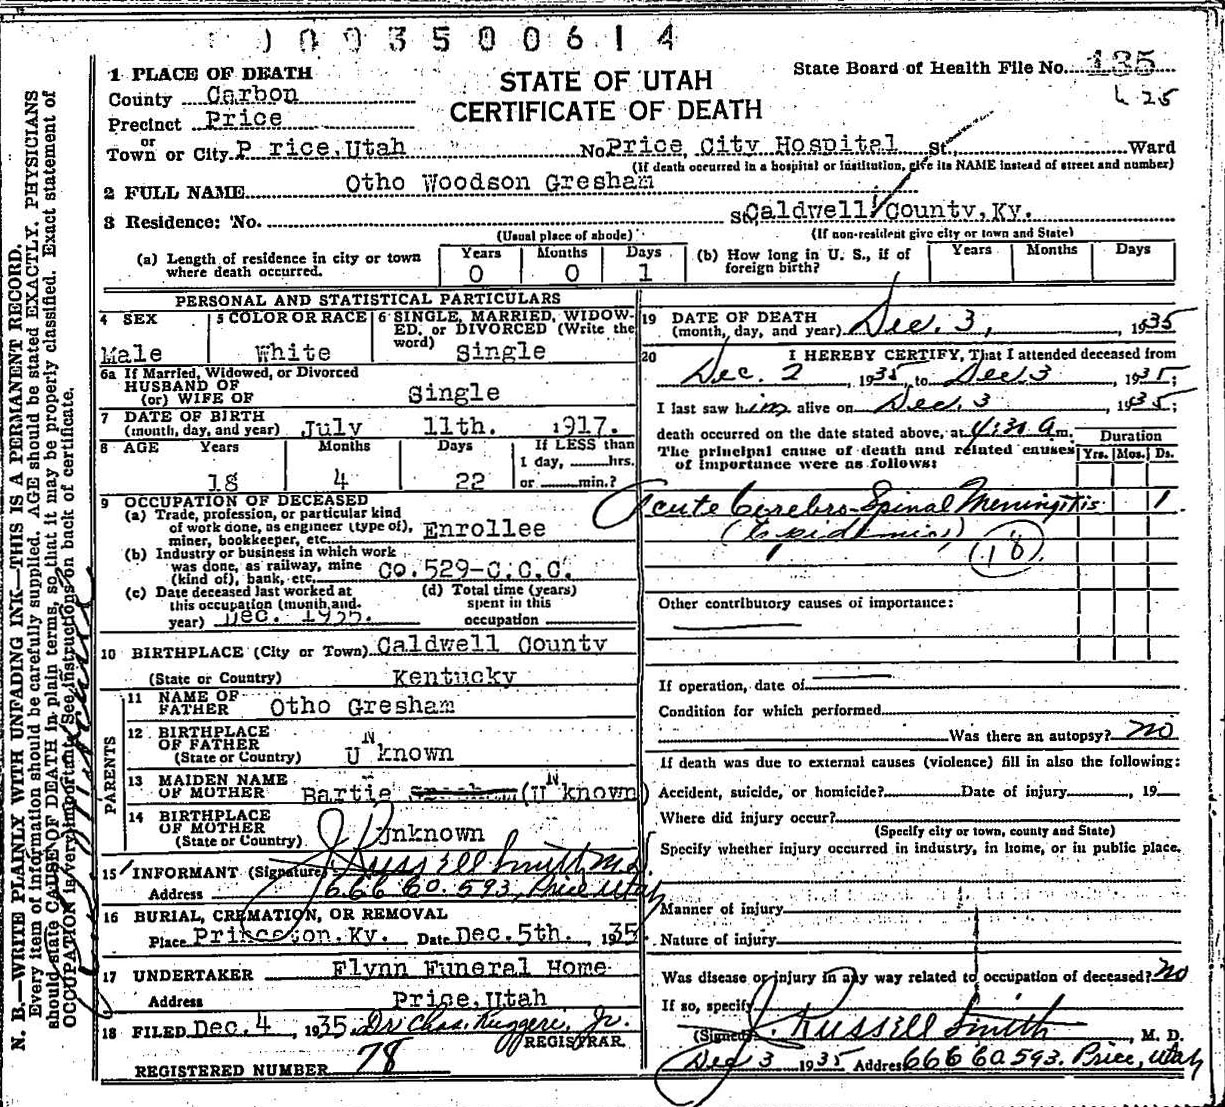 0 0 0 3 5 0 0 6 1 4
1 PLACE OF DEATH
County Carbon
Precinct Price
or
Town or City P rice, Utah No. Price, City Hospital St. Ward
(If death occurred in a hospital or institution, give its NAME instead of street and number)
STATE OF UTAH
CERTIFICATE OF DEATH
State Board of Health File No. 135
25
2 FULL NAME Otho Woodson Gresham
3 Residence: No. St. Caldwell County, Ky.
(Usual place of abode) (If non-resident give city or town and State)
(a) Length of residence in city or town where death occurred. Years 0 Months 0 Days 1
(b) How long in U. S., if of foreign birth? Years Months Days
PERSONAL AND STATISTICAL PARTICULARS
4 SEX Male
5 COLOR OR RACE White
6 SINGLE, MARRIED, WIDOWED, or DIVORCED (Write the word) Single
6a If Married, Widowed, or Divorced
HUSBAND OF
(or) WIFE OF Single
7 DATE OF BIRTH
(month, day, and year) July 11th. 1917.
8 AGE Years 18 Months 4 Days 22 If LESS than 1 day, hrs. or min.?
9 OCCUPATION OF DECEASED
(a) Trade, profession, or particular kind
of work done, as engineer (type of),
miner, bookkeeper, etc. Enrollee
(b) Industry or business in which work
was done, as railway, mine
(kind of), bank, etc. Co. 529-C.C.C.
(c) Date deceased last worked at
this occupation (month and
year) Dec. 1935.
(d) Total time (years)
spent in this
occupation
10 BIRTHPLACE (City or Town) Caldwell County
(State or Country) Kentucky
PARENTS
11 NAME OF
FATHER Otho Gresham
12 BIRTHPLACE
OF FATHER
(State or Country) U N known
13 MAIDEN NAME
OF MOTHER Bartie Gresham (U N known)
14 BIRTHPLACE
OF MOTHER
(State or Country) Unknown
15 INFORMANT (Signature) J Russell Smith M.D.
Address 666 Co. 593, Price Utah
16 BURIAL, CREMATION, OR REMOVAL
Place Princeton, Ky. Date Dec. 5th. 1935.
17 UNDERTAKER Flynn Funeral Home
Address Price, Utah
18 FILED Dec. 4, 1935. Dr Chas. Ruggeri, Jr.
REGISTRAR.
REGISTERED NUMBER 78
19 DATE OF DEATH
(month, day, and year) Dec. 3, 1935
20 I HEREBY CERTIFY, That I attended deceased from
Dec. 2, 1935, to Dec 3, 1935;
I last saw him alive on Dec. 3, 1935;
death occurred on the date stated above, at 4:30 a m.
The principal cause of death and related causes
of importance were as follows:
Duration
Yrs. Mos. Ds.
Acute Cerebro-Spinal Meningitis 1
(Epidemic)
(18)
Other contributory causes of importance:
If operation, date of
Condition for which performed
Was there an autopsy? no
If death was due to external causes (violence) fill in also the following:
Accident, suicide, or homicide? Date of injury, 19
Where did injury occur?
(Specify city or town, county and State)
Specify whether injury occurred in industry, in home, or in public place.
Manner of injury
Nature of injury
Was disease or injury in any way related to occupation of deceased? No
If so, specify
(Signed) J. Russell Smith, M. D.
Dec 3 1935 Address 666 Co 593. Price, Utah
N. B.—WRITE PLAINLY WITH UNFADING INK—THIS IS A PERMANENT RECORD.
Every item of information should be carefully supplied. AGE should be stated EXACTLY. PHYSICIANS
should state CAUSE OF DEATH in plain terms, so that it may be properly classified. Exact statement of
OCCUPATION is very important. See instructions on back of certificate.